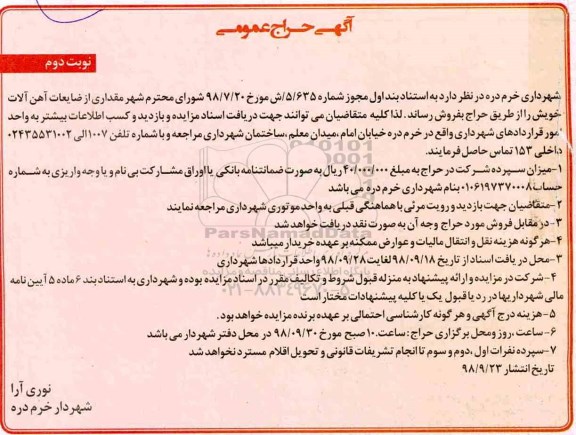 آگهی حراج عمومی
نوبت دوم
شهرداری خرم دره در نظر دارد به استناد بند اول مجوز شماره ۵/۶۳۵/ش مورخ ۹۸/۷/۲۰ شورای محترم شهر مقداری از ضایعات آهن آلات
خویش را از طریق حراج بفروش رساند. لذا کلیه متقاضیان می توانند جهت دریافت اسناد مزایده و بازدید و کسب اطلاعات بیشتر به واحد
امور قراردادهای شهرداری واقع در خرم دره خیابان امام، میدان معلم، ساختمان شهرداری مراجعه و با شماره تلفن ۱۰۰۷ الی ۰۲۴۳۵۵۳۱۰۰۲
داخلی ۱۵۳ تماس حاصل فرمایند.
۱-میزان سپرده شرکت در حراج به مبلغ ۴۰/۰۰۰/۰۰۰ ریال به صورت ضمانتنامه بانکی یا اوراق مشارکت بی نام و یا وجه واریزی به شماره
حساب ۰۱۰۶۱۹۷۳۷۰۰۰۸ بنام شهرداری خرم دره می باشد
۲-متقاضیان جهت بازدید و رویت مرئی با هماهنگی قبلی به واحد موتوری شهرداری مراجعه نمایند
۳-در مقابل فروش مورد حراج وجه آن به صورت نقد دریافت خواهد شد
۴-هرگونه هزینه نقل و انتقال مالیات و عوارض ممکنه بر عهده خریدار میباشد
۳-محل دریافت اسناد از تاریخ ۹۸/۰۹/۱۸ لغایت ۹۸/۰۹/۲۸ واحد قراردادها شهرداری
۴-شرکت در مزایده و ارائه پیشنهاد به منزله قبول شروط و تکالیف مقرر در اسناد مزایده بوده و شهرداری به استناد بند ۶ ماده ۵ آیین نامه
مالی شهرداریها در رد یا قبول یک یا کلیه پیشنهادات مختار است
۵-هزینه درج آگهی و هر گونه کارشناسی احتمالی بر عهده برنده مزایده خواهد بود.
۶-ساعت، روز و محل برگزاری حراج: ساعت ۱۰ صبح مورخ ۹۸/۰۹/۳۰ در محل دفتر شهردار می باشد
۷-سپرده نفرات اول، دوم و سوم تا انجام تشریفات قانونی و تحویل اقلام مسترد نخواهد شد
تاریخ انتشار ۹۸/۹/۲۳
نوری آرا
شهردار خرم دره
ParsNamadData
۰۲۱-۸۸۳۴۹۶۷۰-۵